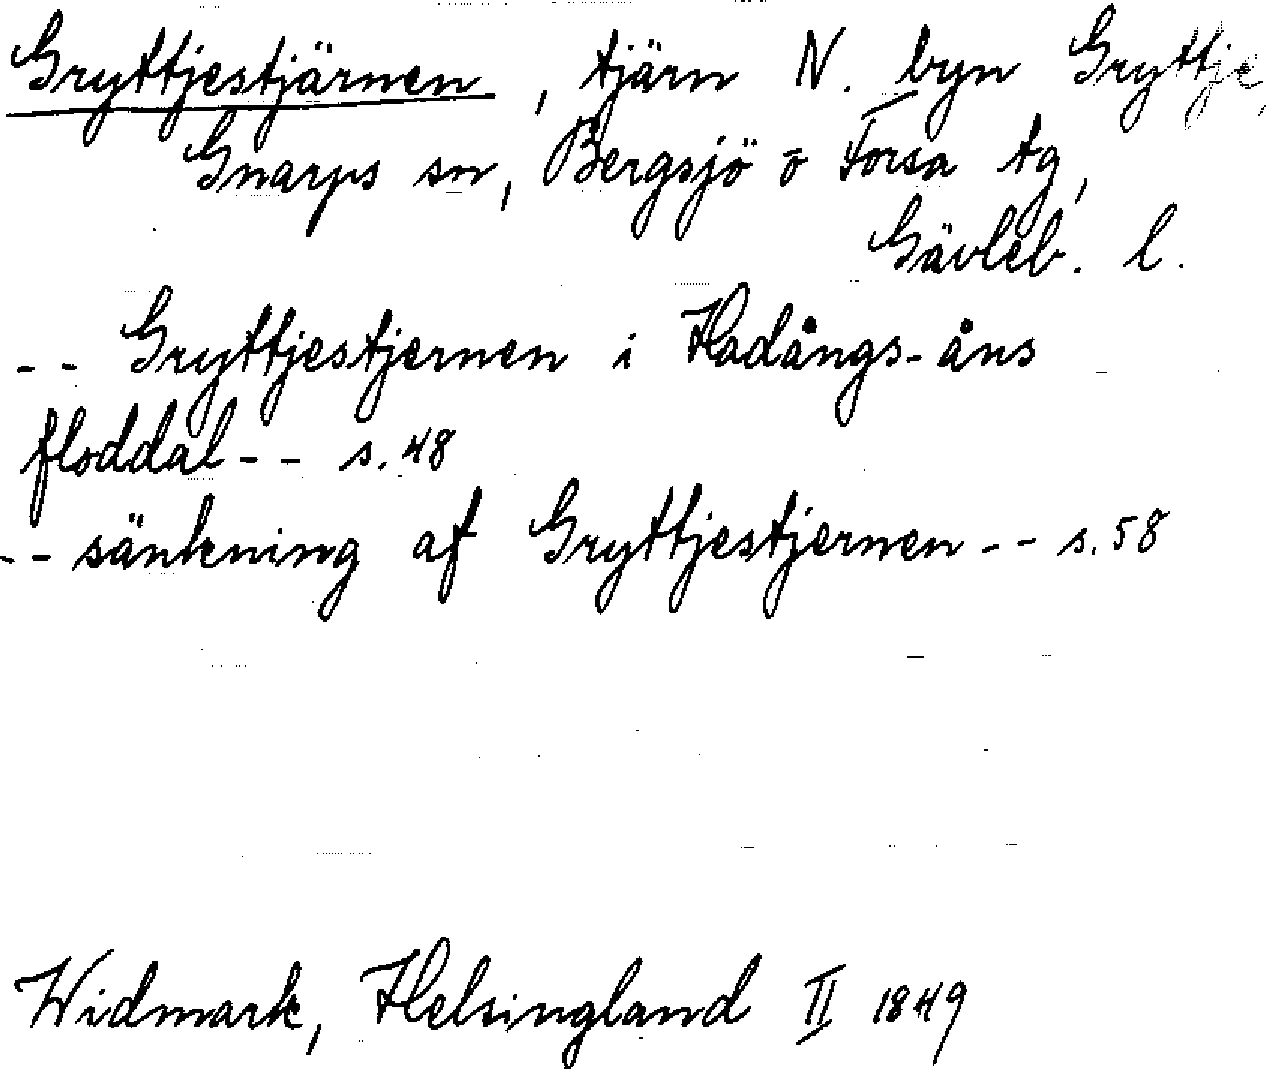 Gryttjestjärnen, tjärn N. byn Gryttje,
Gnarps sn, Bergsjö o Forsa tg,
Gävleb. l.
-- Gryttjestjernen i Hadångs-åns
floddal -- s. 48
-- sänkning af Gryttjestjernen -- s. 58
Widmark, Helsingland II 1849